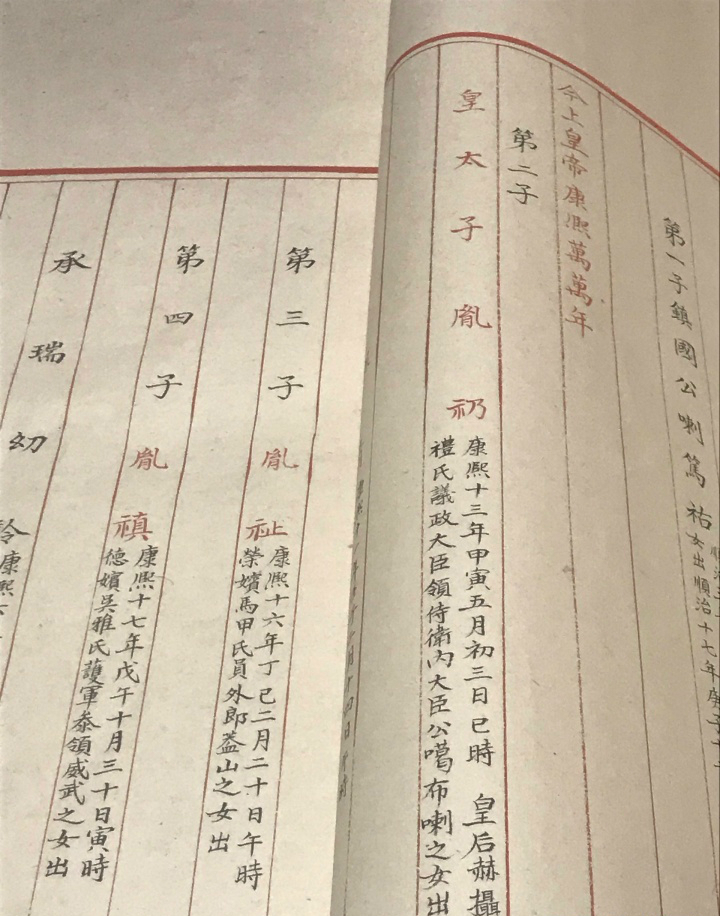 第一子鎮國公喇篤祐
女出順治十七年庚子十
今上皇帝康熙萬萬年
第二子
皇太子胤礽
康熙十三年甲寅五月初三日巳時 皇后赫攝
禮氏議政大臣領侍衛內大臣公噶布喇之女出
第三子胤祉
康熙十六年丁巳二月二十日午時
榮嬪馬甲氏員外郎蓋山之女出
第四子胤禛
康熙十七年戊午十月三十日寅時
德嬪吳雅氏護軍參領威武之女出
承瑞幼
康熙